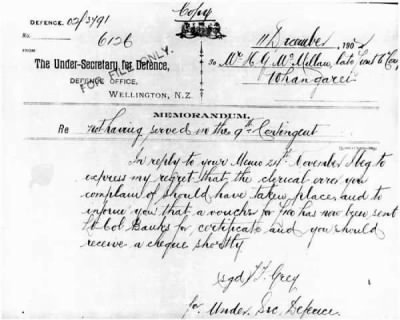 Copy
DEFENCE. 02/3791
No. 6126
11 December 190
FROM
The Under-Secretary for Defence,
DEFENCE OFFICE,
WELLINGTON, N.Z.
FOR FILE ONLY.
To Mr H G McMillan, late
Whangarei
MEMORANDUM.
Re not having served in the 9th Contingent
In reply to your Memo 24th November I beg to
express my regret that the clerical error you
complain of should have taken place and to
inform you that a voucher for has now been sent
Lt Col Banks for certificate and you should
receive a cheque shortly
sgd J F Grey
for Under Sec Defence